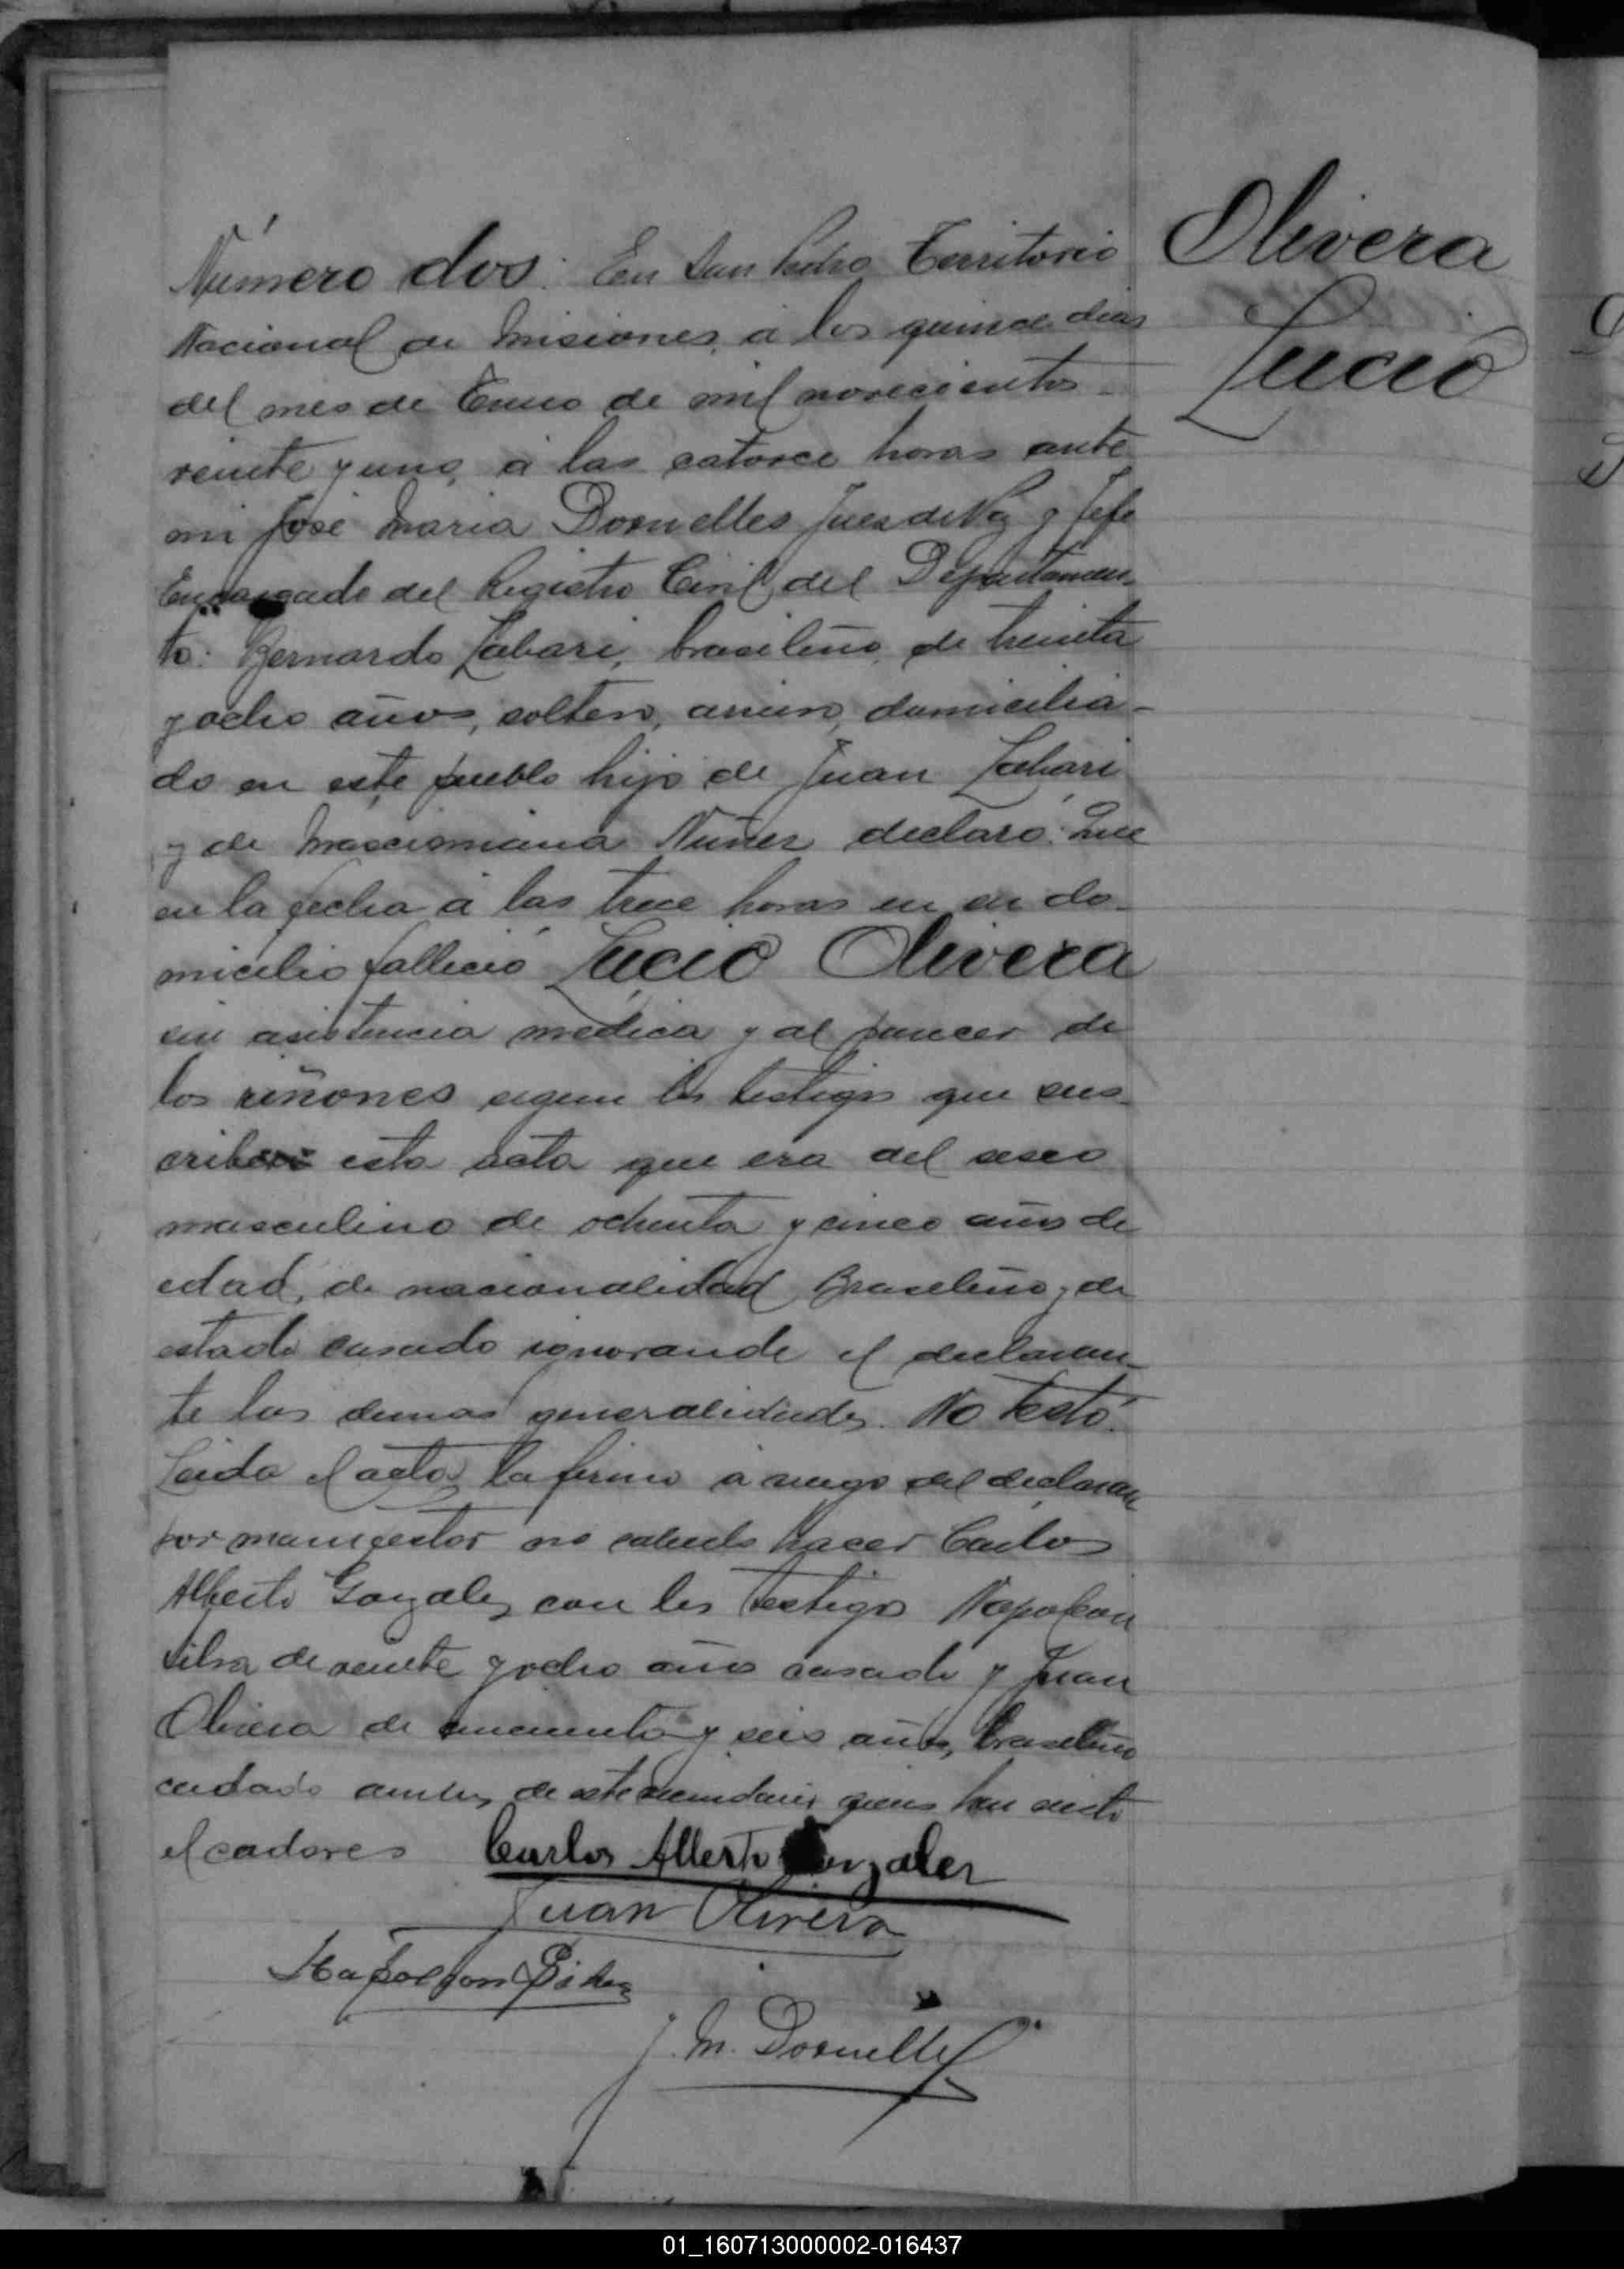 Número dos. En San Pedro Territorio
Nacional de Misiones, á los quince dias
del mes de Enero de mil novecientos
veinte y uno, á las catorce horas ante
mi José Maria Dornelles Juez de Paz y Jefe
Encargado del Registro Civil del Departamen-
to: Bernardo Zabari, brasileño, de treinta
y ocho años, soltero, domicilia-
do en este pueblo hijo de Juan Zabari
y de Macsimiana Nuñez declaró: Que
en la fecha á las trece horas en su do-
micilio falleció Lucio Olivera
sin asistencia medica y al parecer de
los riñones segun los testigos que sus-
criben esta acta que era del sexo
masculino de ochenta y cinco años de
edad, de nacionalidad Brasileño y de
estado casado ignorando el declaran-
te las demas generalidades. No testó.
Leida el acta, la firmó á ruego del declaran
por manifestar no saberlo hacer Carlos
Alberto Gonzalez con los testigos Napoleon
Silva de veinte y ocho años casado y Juan
Olivera de cincuenta y seis años, brasileño
de este vecindario quienes han visto
el cadaver
Carlos Alberto Gonzalez
Juan Olivera
Napoleon Silva
J. M. Dornelles
Olivera
Lucio
01_160713000002-016437